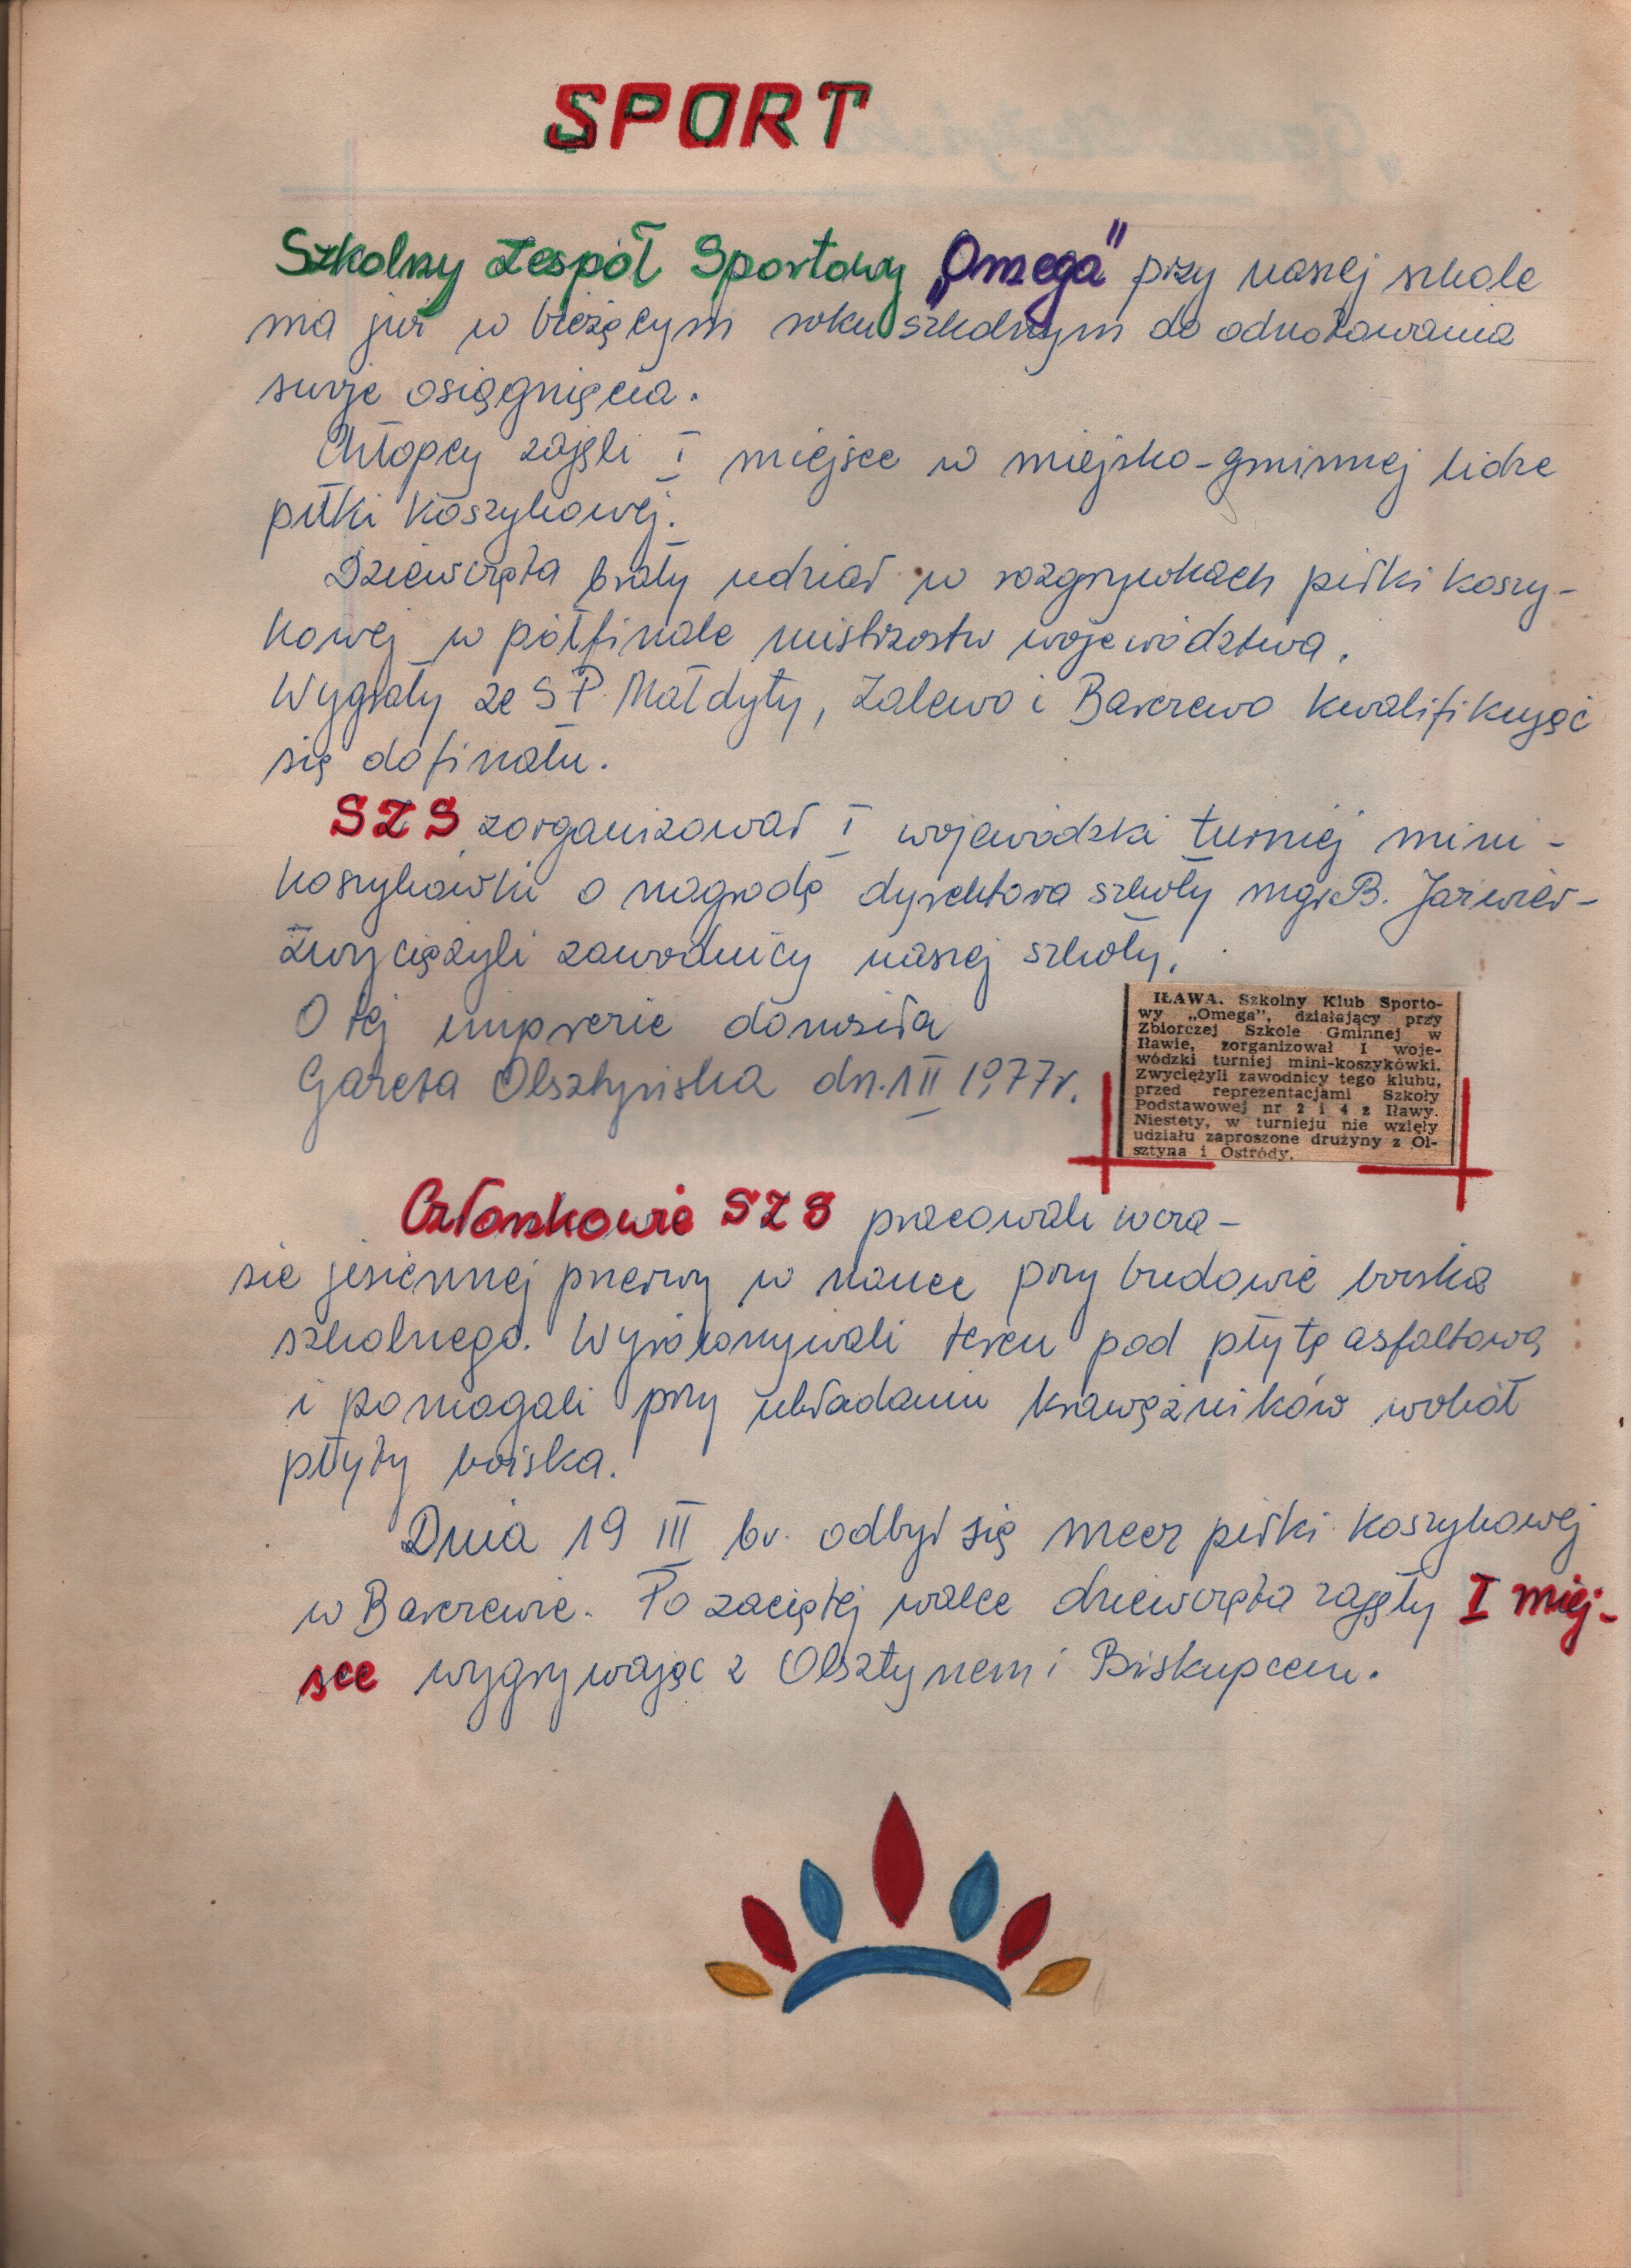 SPORT
Szkolny Zespół Sportowy „Omega" przy naszej szkole
ma już w bieżącym roku szkolnym do odnotowania
swoje osiągnięcia.
Chłopcy zajęli I miejsce w miejsko-gminnej lidze
piłki koszykowej.
Dziewczęta brały udział w rozgrywkach piłki koszy-
kowej w półfinale mistrzostw województwa.
Wygrały ze SP. Małdyty, Zalewo i Barczewo kwalifikując
się do finału.
SZS zorganizował I wojewódzki turniej mini-
koszykówki o nagrodę dyrektora szkoły mgr B.
Zwyciężyli zawodnicy naszej szkoły.
O tej imprezie donosiła
Gazeta Olsztyńska dn. 1 II 1977r.
IŁAWA. Szkolny Klub Sporto-
wy „Omega", działający przy
Zbiorczej Szkole Gminnej w
Iławie, zorganizował I woje-
wódzki turniej mini-koszykówki.
Zwyciężyli zawodnicy tego klubu,
przed reprezentacjami Szkoły
Podstawowej nr 2 i 4 z Iławy.
Niestety, w turnieju nie wzięły
udziału zaproszone drużyny z Ol-
sztyna i Ostródy.
Członkowie SZS pracowali w cza-
sie jesiennej przerwy w nauce przy budowie boiska
szkolnego. Wyrównywali teren pod płytę asfaltową
i pomagali przy układaniu krawężników wokół
płyty boiska.
Dnia 19 III br. odbył się mecz piłki koszykowej
w Barczewie. Po zaciętej walce dziewczęta zajęły I miej-
sce wygrywając z Olsztynem i Biskupcem.